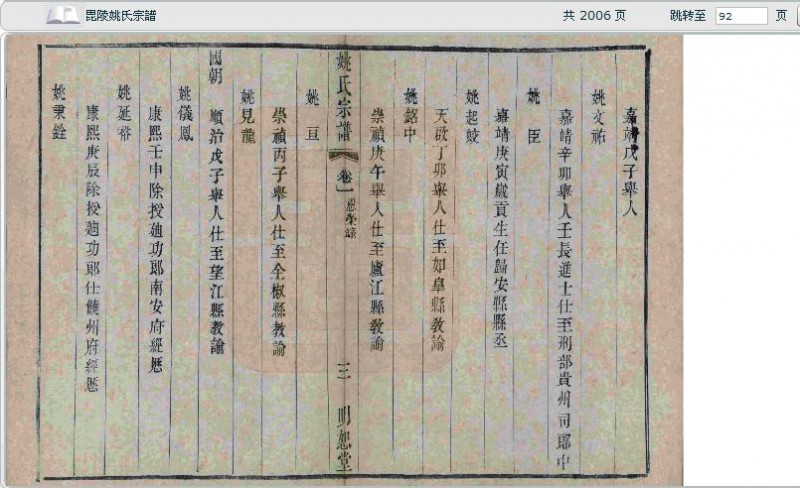 毘陵姚氏宗譜
共 2006 页
跳转至 92 页
嘉靖戊子舉人
姚文祐
嘉靖辛卯舉人壬長進士仕至刑部貴州司郎中
姚臣
嘉靖庚寅歲貢生任歸安縣縣丞
姚起蛟
天啟丁卯舉人仕至如臯縣教諭
姚銘中
崇禎庚午舉人仕至廬江縣教諭
姚氏宗譜 卷一 恩榮錄 三 明恕堂
姚亘
崇禎丙子舉人仕至全椒縣教諭
姚見龍
國朝 順治戊子舉人仕至望江縣教諭
姚儀鳳
康熙壬申除授廸功郎南安府經歷
姚延裕
康熙庚辰除授廸功郎仕饒州府經歷
姚秉銓